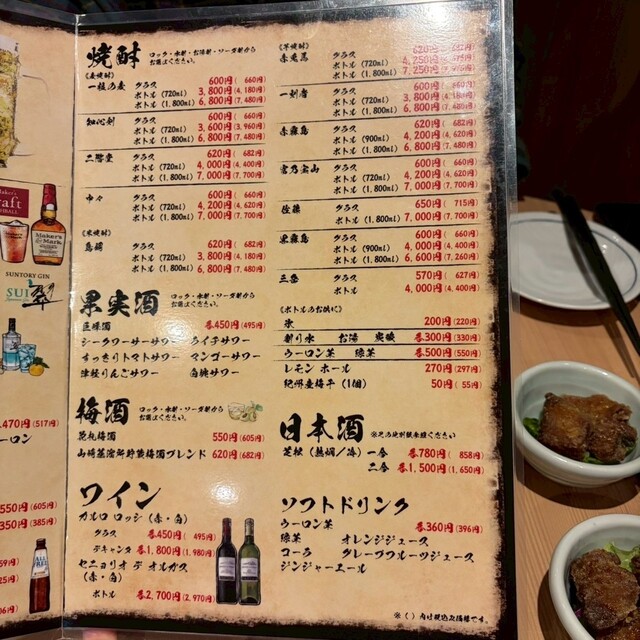 Maker's
raft
HIGHBALL
Maker's Mark
SUNTORY GIN
SUI 翠
470円(517円)
ーロン
550円(605円)
350円(385円)
ALL FREE
焼酎
ロック・水割・お湯割・ソーダ割から
お選びください。
《麦焼酎》
一粒の麦 グラス 600円( 660円)
ボトル(720ml) 3,800円(4,180円)
ボトル(1,800ml) 6,800円(7,480円)
知心剣 グラス 600円( 660円)
ボトル(720ml) 3,600円(3,960円)
ボトル(1,800ml) 6,800円(7,480円)
二階堂 グラス 620円( 682円)
ボトル(720ml) 4,000円(4,400円)
ボトル(1,800ml) 7,000円(7,700円)
中々 グラス 600円( 660円)
ボトル(720ml) 4,200円(4,620円)
ボトル(1,800ml) 7,000円(7,700円)
《米焼酎》
鳥飼 グラス 620円( 682円)
ボトル(720ml) 3,800円(4,180円)
ボトル(1,800ml) 6,800円(7,480円)
果実酒
ロック・水割・ソーダ割から
お選びください。
巨峰酒 各450円(495円)
シークワーサーサワー ライチサワー
すっきりトマトサワー マンゴーサワー
津軽りんごサワー 白桃サワー
梅酒
ロック・水割・ソーダ割から
お選びください。
花札梅酒 550円(605円)
山崎蒸溜所貯蔵梅酒ブレンド 620円(682円)
ワイン
カルロ ロッシ (赤・白)
グラス 各450円( 495円)
デキャンタ 各1,800円(1,980円)
セニョリオ デ オルガス
(赤・白)
ボトル 各2,700円(2,970円)
《芋焼酎》
赤兎馬 グラス 620円( 682円)
ボトル(720ml) 4,250円
ボトル(1,800ml) 7,250円
一刻者 グラス 600円( 660円)
ボトル(720ml) 3,800円(4,180円)
ボトル(1,800ml) 6,800円(7,480円)
赤霧島 グラス 620円( 682円)
ボトル(900ml) 4,200円(4,620円)
ボトル(1,800ml) 6,800円(7,480円)
富乃宝山 グラス 600円( 660円)
ボトル(720ml) 4,200円(4,620円)
ボトル(1,800ml) 7,000円(7,700円)
佐藤 グラス 650円( 715円)
ボトル(1,800ml) 7,000円(7,700円)
黒霧島 グラス 600円( 660円)
ボトル(900ml) 4,000円(4,400円)
ボトル(1,800ml) 6,600円(7,260円)
三岳 グラス 570円( 627円)
ボトル 4,000円(4,400円)
《ボトルのお供に》
氷 200円(220円)
割り水 お湯 炭酸 各300円(330円)
ウーロン茶 緑茶 各500円(550円)
レモン ホール 270円(297円)
紀州産梅干(1個) 50円( 55円)
日本酒
芝松(熱燗/冷) 一合 各780円( 858円)
二合 各1,500円(1,650円)
ソフトドリンク
ウーロン茶 各360円(396円)
緑茶 オレンジジュース
コーラ グレープフルーツジュース
ジンジャーエール
※( )内は税込み価格です。